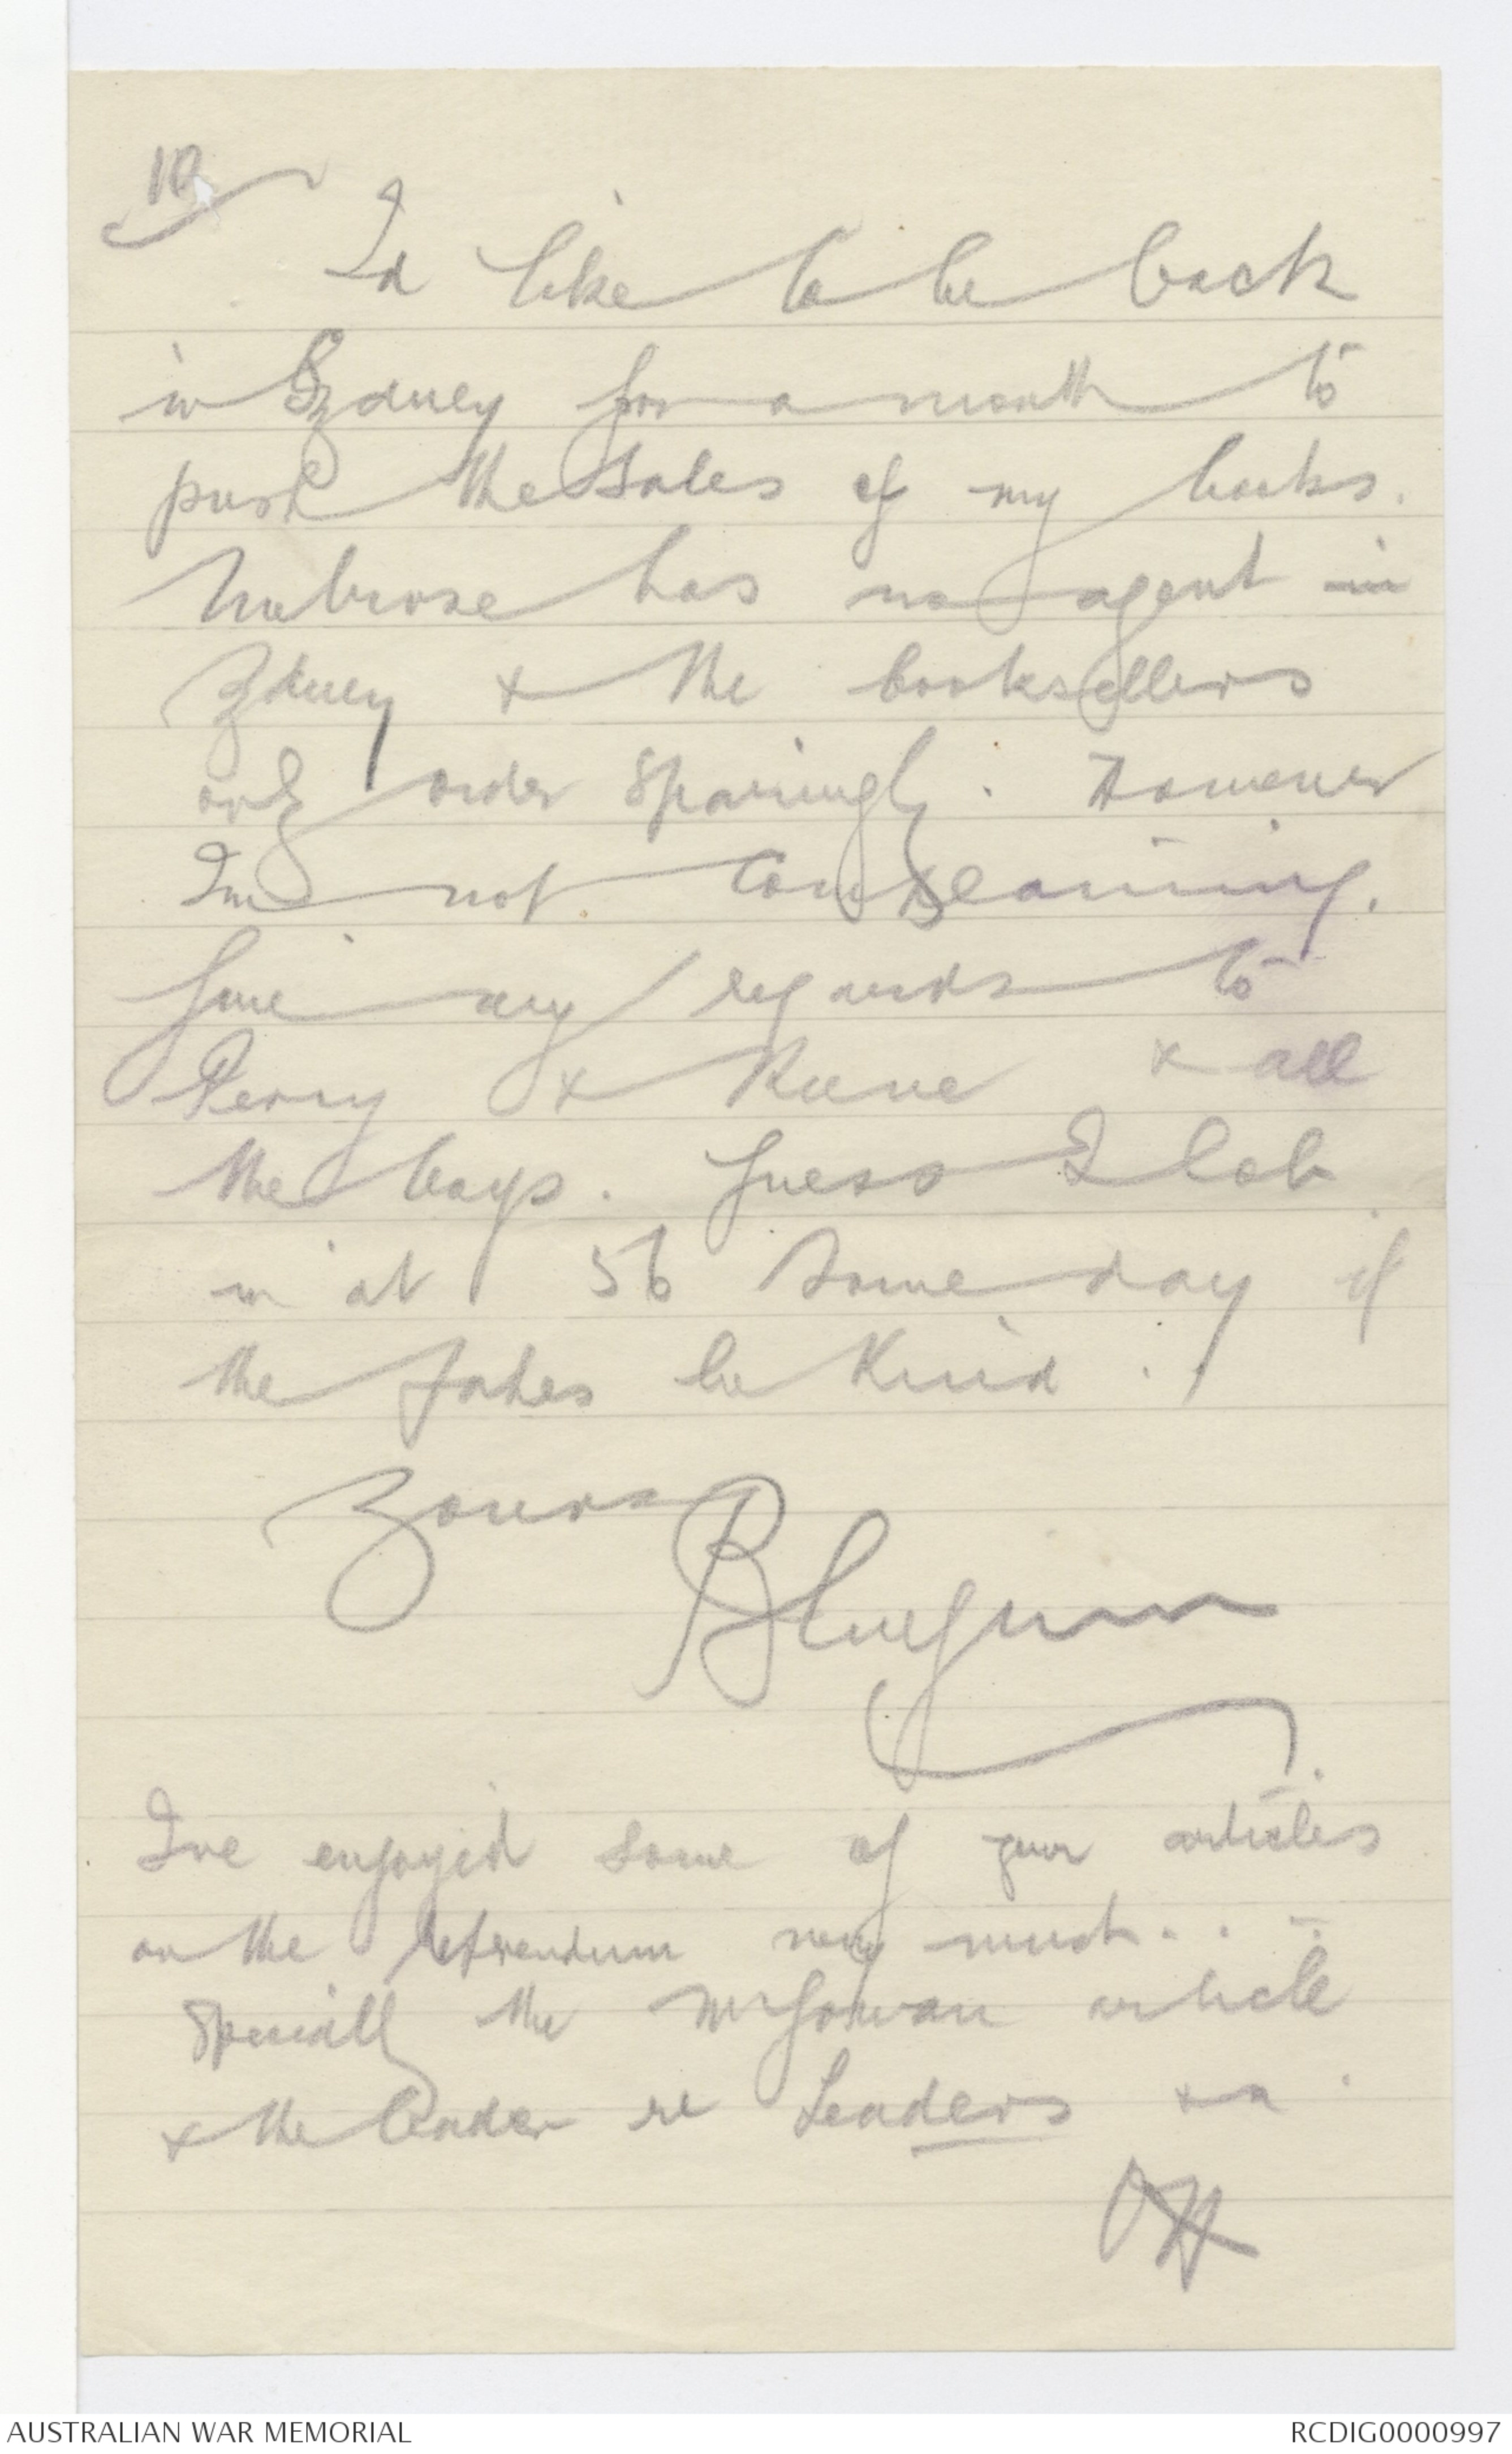 10
Id like to be back
in Sydney for a month to
push the sales of my books.
Melrose has no agent in
Sydney & the booksellers
only order sparingly. However
Im not complaining.
Give my regards to
Perry & & all
the boys. Guess I lob
in at 56 some day if
the fates be kind.
Yours
Bluegum
Ive enjoyed some of your articles
on the referendum very much...
specially the McGowan article
& the leader re Leaders &a.
OH
AUSTRALIAN WAR MEMORIAL
RCDIG0000997